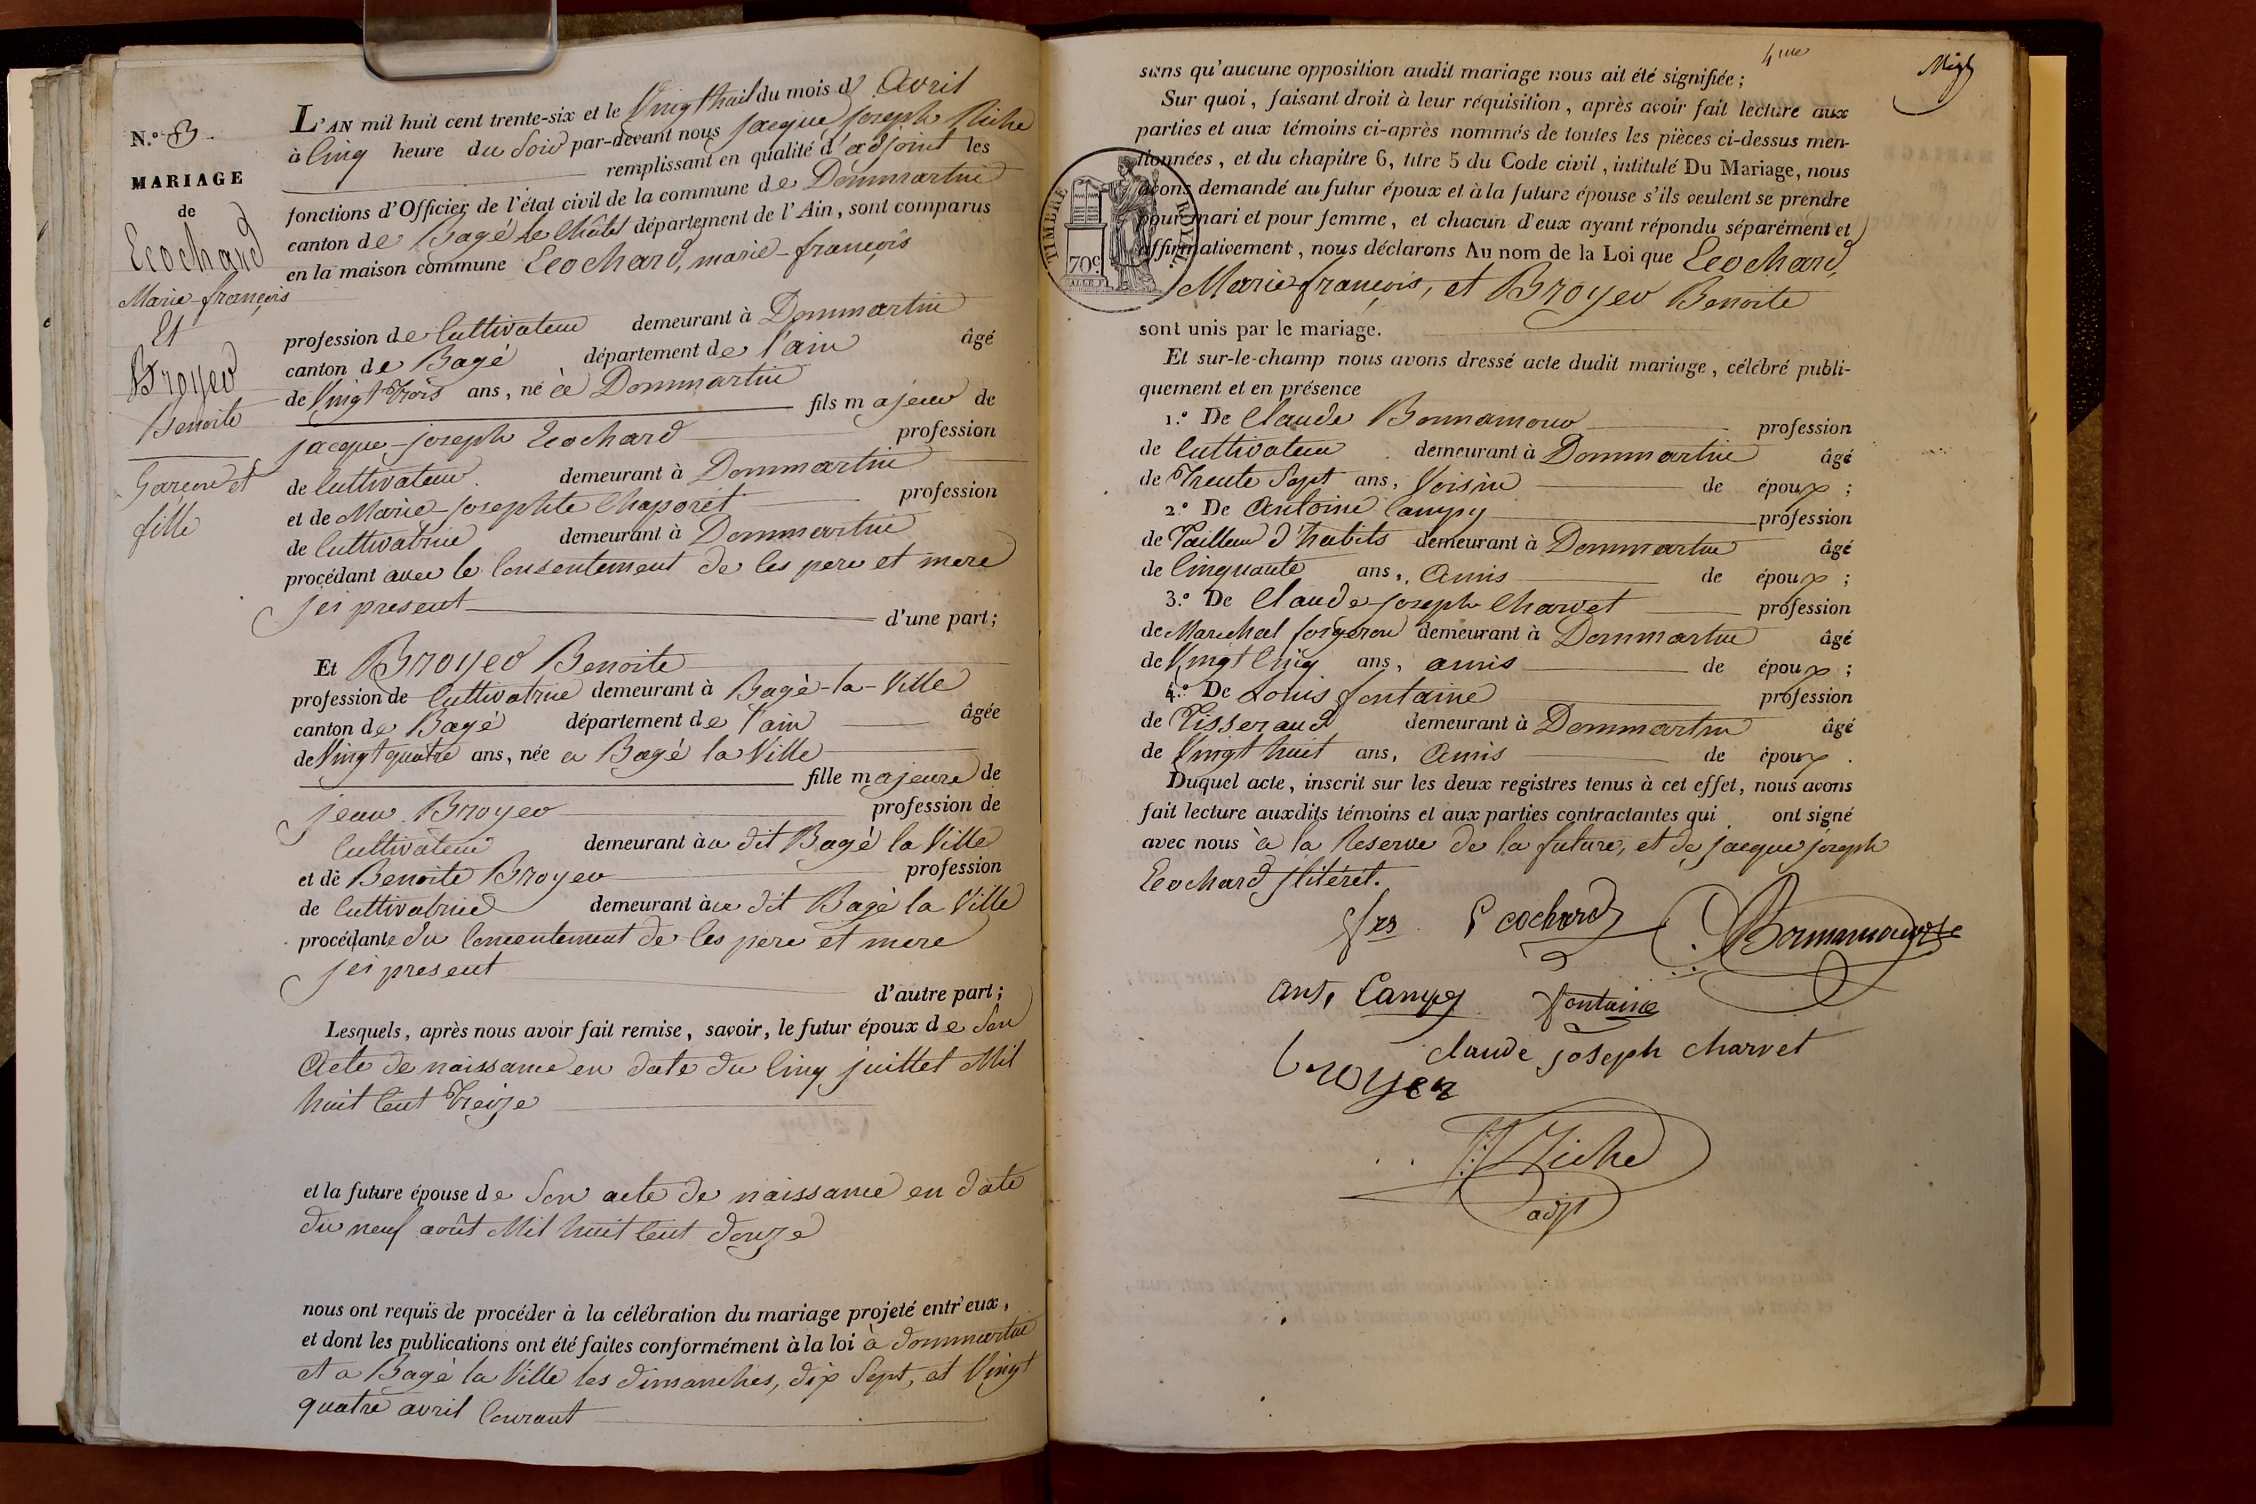 N.° 8
MARIAGE
de
Ecochard
Marie-françois
Et
Broyer
Benoite
Garçon et
fille
L'AN mil huit cent trente-six et le Vingt huit du mois d' Avril
à Cinq heure du Soir par-devant nous jacque joseph Riche
remplissant en qualité d'adjoint les
fonctions d'Officier de l'état civil de la commune de Dommartin
canton de Bagé le Châtel département de l'Ain, sont comparus
en la maison commune Ecochard, marie-françois
profession de Cultivateur demeurant à Dommartin
canton de Bagé département de l'ain âgé
de Vingt Trois ans, né à Dommartin
fils majeur de
jacque-joseph Ecochard profession
de Cultivateur demeurant à Dommartin
et de Marie-josephte Chaporet profession
de Cultivatrice demeurant à Dommartin
procédant avec le Consentement de Ces pere et mere
jci present d'une part;
Et Broyer Benoite
profession de Cultivatrice demeurant à Bagé-la-Ville
canton de Bagé département de l'ain âgée
de Vingt quatre ans, née a Bagé la Ville
fille majeure de
jean Broyer profession de
Cultivateur demeurant àu dit Bagé la Ville
et de Benoite Broyer profession
de Cultivatrice demeurant àu dit Bagé la Ville
procédante du Concentement de Ces pere et mere
jci present
d'autre part;
Lesquels, après nous avoir fait remise, savoir, le futur époux de Son
Acte de naissance en date du Cinq juillet Mil
huit Cent Treize
et la future épouse de Son acte de naissance en date
du neuf août Mil huit Cent douze
nous ont requis de procéder à la célébration du mariage projeté entr'eux,
et dont les publications ont été faites conformément à la loi à dommartin
et a Bagé la Ville les dimanches, dix Sept, et Vingt
quatre avril Courant
4me
sans qu'aucune opposition audit mariage nous ait été signifiée;
Sur quoi, faisant droit à leur réquisition, après avoir fait lecture aux
parties et aux témoins ci-après nommés de toutes les pièces ci-dessus men-
tionnées, et du chapitre 6, titre 5 du Code civil, intitulé Du Mariage, nous
avons demandé au futur époux et à la future épouse s'ils veulent se prendre
pour mari et pour femme, et chacun d'eux ayant répondu séparément et
affirmativement, nous déclarons Au nom de la Loi que Ecochard,
Marie françois, et Broyer Benoite
TIMBRE ROYAL.
70c
sont unis par le mariage.
Et sur-le-champ nous avons dressé acte dudit mariage, célébré publi-
quement et en présence
1.° De Claude Bonnamour profession
de Cultivateur demeurant à Dommartin âgé
de Trente Sept ans, Voisin de époux;
2.° De Antoine Campy profession
de Tailleur d'habits demeurant à Dommartin âgé
de Cinquante ans, Amis de époux;
3.° De Claude-joseph Charvet profession
de Marechal forgeron demeurant à Dommartin âgé
de Vingt Cinq ans, amis de époux;
4.° De Louis fontaine profession
de Tisserand demeurant à Dommartin âgé
de Vingt huit ans, Amis de époux.
Duquel acte, inscrit sur les deux registres tenus à cet effet, nous avons
fait lecture auxdits témoins et aux parties contractantes qui ont signé
avec nous à la Reserve de la future, et de jacque joseph
Ecochard jlitéret.
frs Ecochard Bonnamour
ant, Campy fontaine
claude joseph charvet
broyer
Riche
adjt